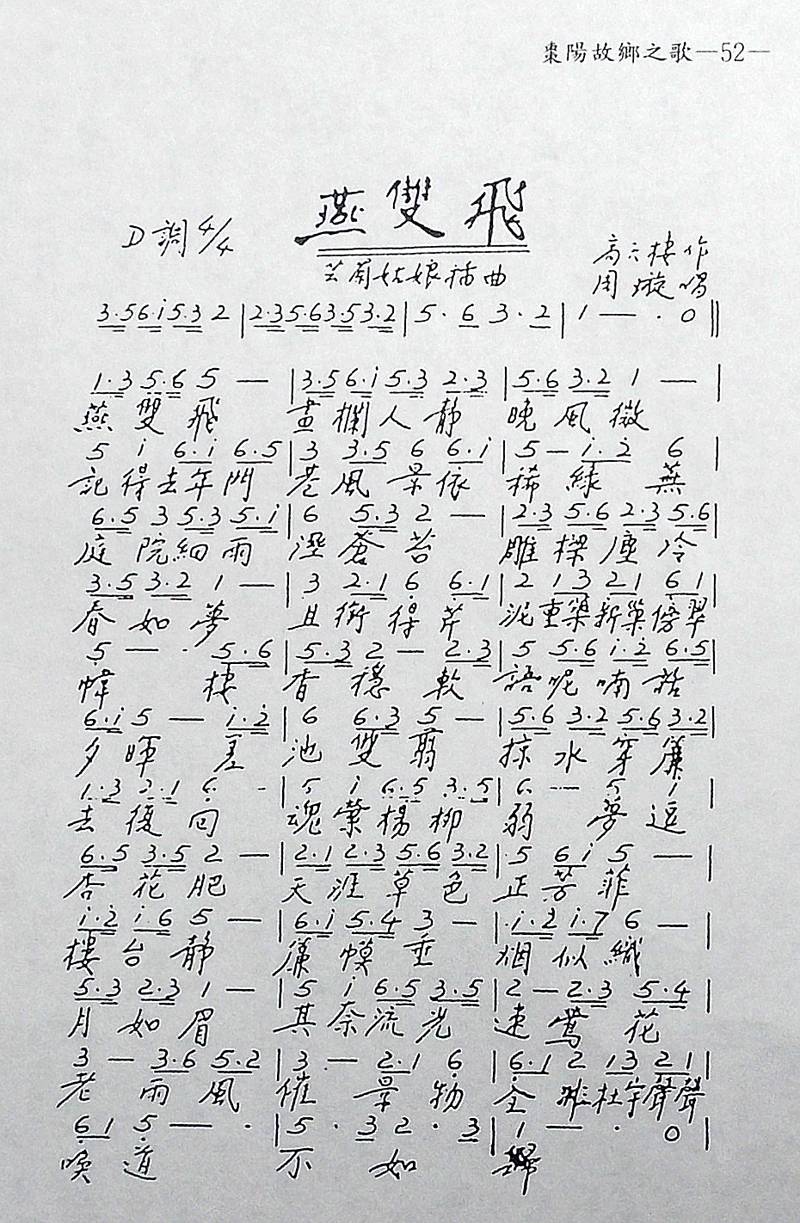 棗陽故鄉之歌—52—
燕雙飛
D調 4/4
高天棲作
周璇唱
芸蘭姑娘插曲
3·56i5·3 2 |2·35·63·53·2| 5· 6 3· 2 | 1 — · 0 ‖
1·3 5·6 5 — |3·56·i 5·3 2·3 |5·6 3·2 1 — |
燕雙飛 畫欄人靜 晚風微
5 i 6·i 6·5 |3 3·5 6 6·i | 5 — i·2 6 |
記得去年門 巷風景依 稀綠蕪
6·5 3 5·3 5·i | 6 5·3 2 — |2·3 5·6 2·3 5·6|
庭院細雨 溼蒼苔 雕樑塵冷
3·5 3·2 1 — | 3 2·1 6 6·1 | 2 13 21 61 |
春如夢 且銜得芹 泥重築新巢傍翠
5 — · 5·6 |5·3 2 — 2·3 | 5 5·6 i·2 6·5|
幃棲 香穩軟 語呢喃話
6·i 5 — i·2 | 6 6·3 5 — |5·6 3·2 5·6 3·2|
夕暉差 池雙翦 掠水穿簾
1·3 2·1 6 - | 5 i 6·5 3·5| 6 — 5 i |
去復回 魂縈楊柳 弱夢逗
6·5 3·5 2 — |2·1 2·3 5·6 3·2| 5 6i 5 — |
杏花肥 天涯草色 正芳菲
i·2 i·6 5 — |6·i 5·4 3 — |i·2 i·7 6 — |
樓台靜 簾幙垂 烟似織
5·3 2·3 1 — | 5 i 6·5 3·5 | 2 — 2·3 5·4 |
月如眉 其奈流光 速鶯花
3 — 3·6 5·2 | 3 — 2·1 6 |6·1 2 13 21|
老雨風 催景物 全非杜宇聲聲
61 5 — · | 5· 3 2· 3 | 1 — · 0 |
喚道 不如歸